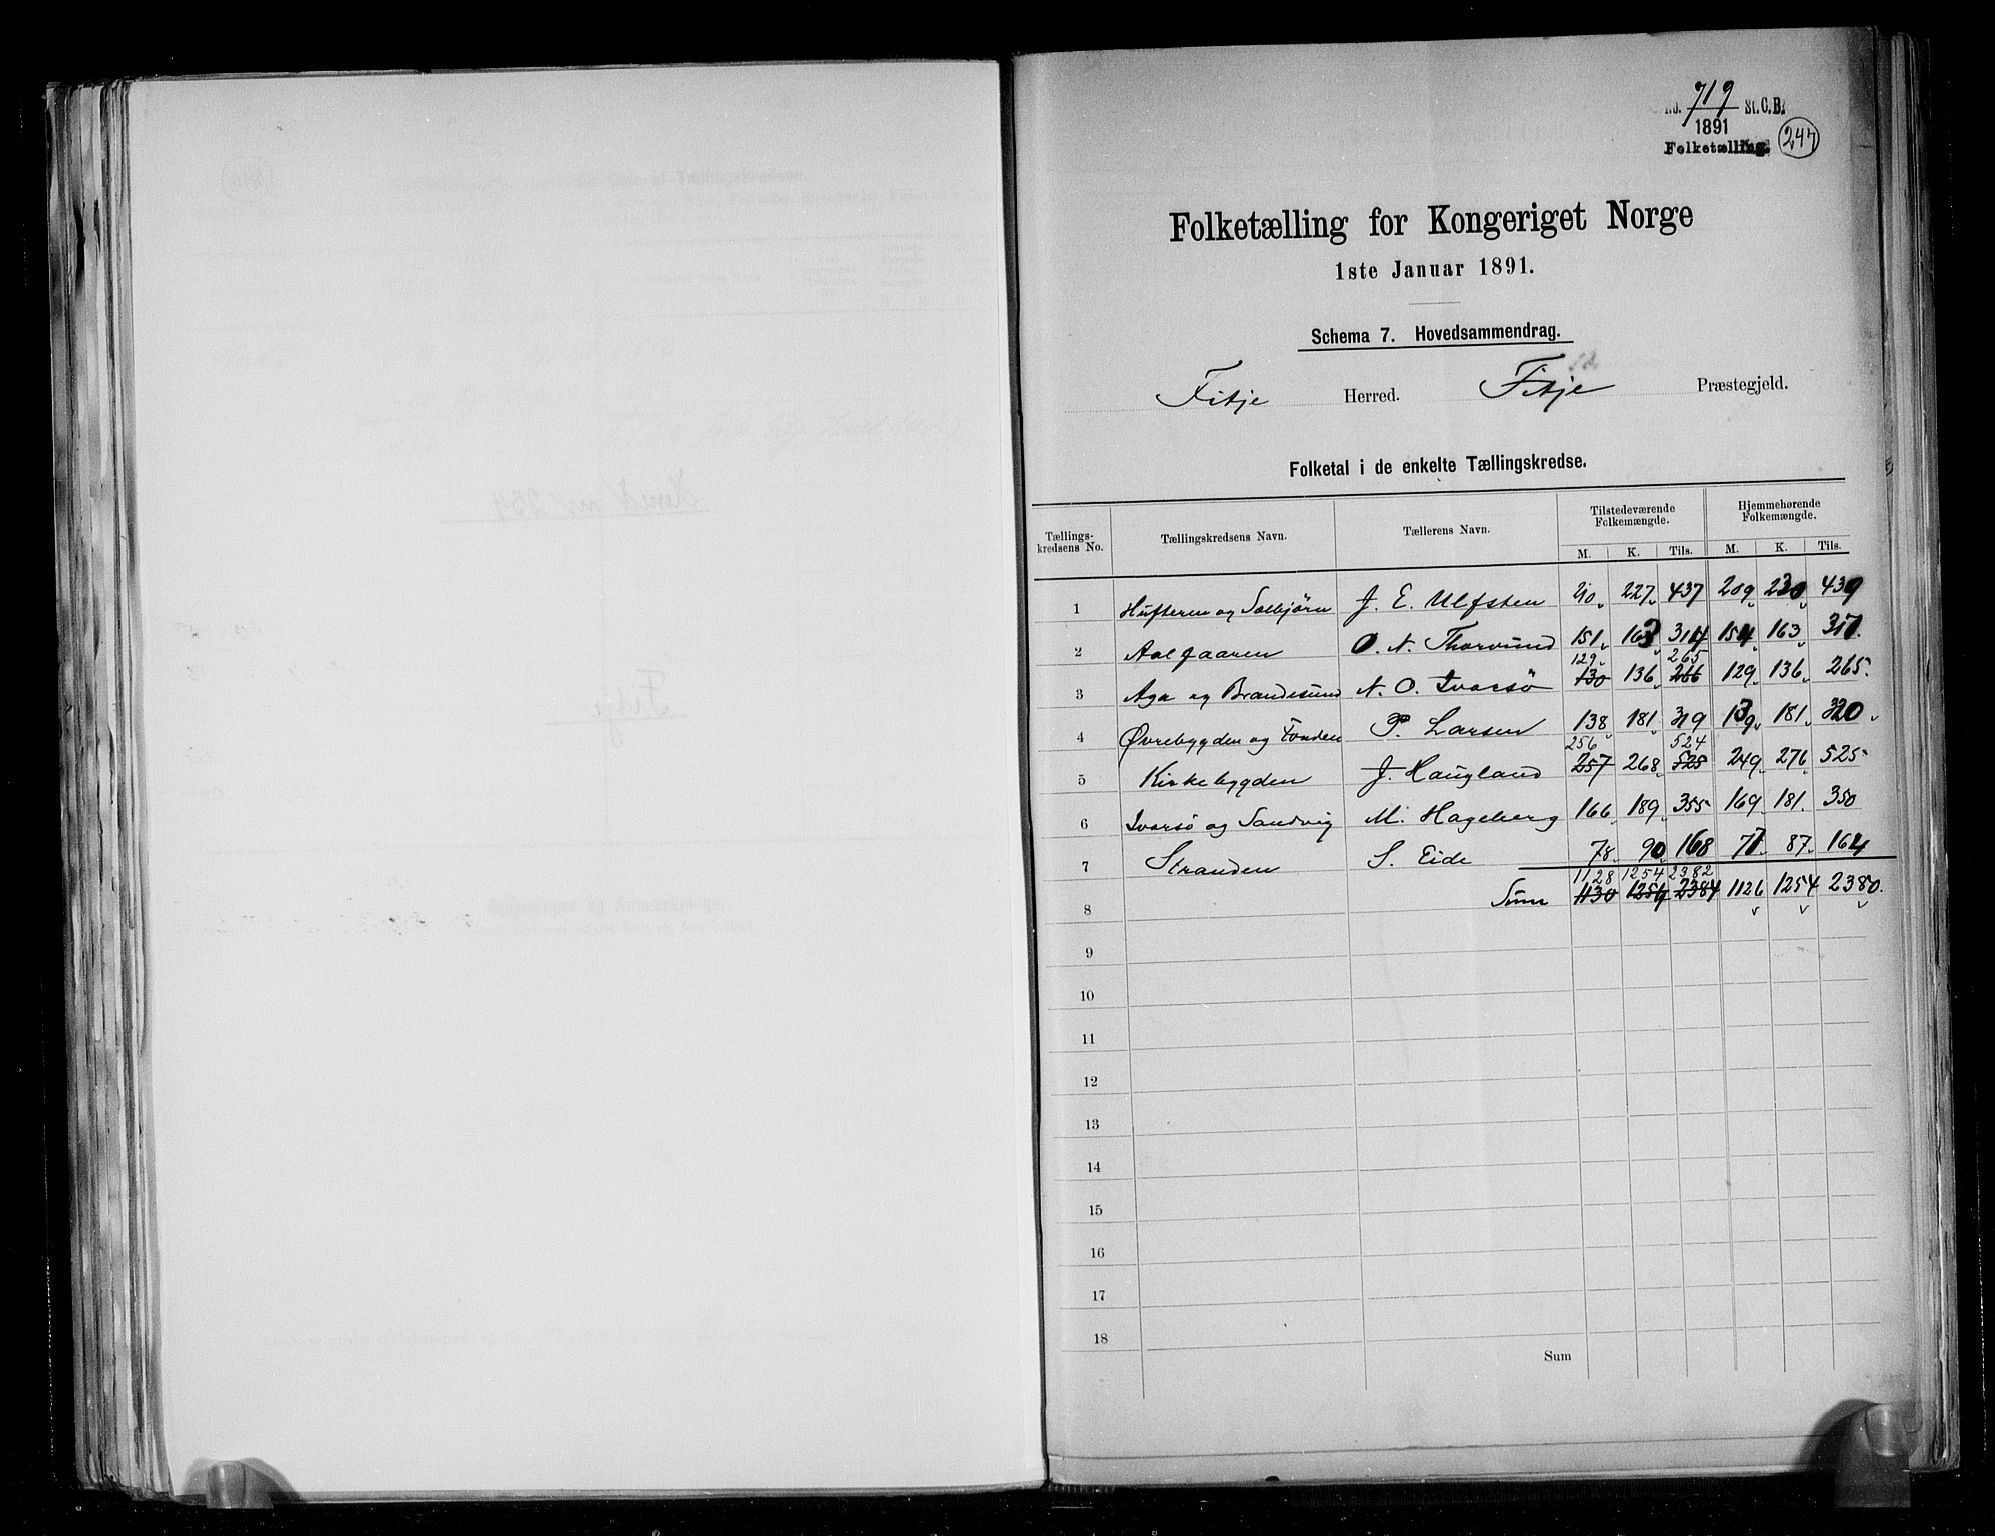 No. 719 St.C.B.
1891
Folketælling.
247
Folketælling for Kongeriget Norge
1ste Januar 1891.
Schema 7. Hovedsammendrag.
Fitje Herred. Fitje Præstegjeld.
Folketal i de enkelte Tællingskredse.
Tællings-kredsens No. Tællingskredsens Navn. Tællerens Navn. Tilstedeværende Folkemængde. Hjemmehørende Folkemængde.
M. K. Tils. M. K. Tils.
1 Hufteren og Selbjørn J. E. Ulfsten 210 227 437 209 230 439
2 O. N. Thorvund 151 163 314 154 163 317
129 265
3 Aga og Brandesund N. O. Ivarsø 130 136 266 129 136 265
4 Øvrebygden og P. Larsen 138 181 319 139 181 320
256 524
5 Kirkebygden J. Haugland 257 268 525 249 276 525
6 Ivarsø og Sandvig M. Hageberg 166 189 355 169 181 350
7 Stranden S. Eide 78 90 168 77 87 164
1128 1254 2382
8 Sum 1130 1254 2384 1126 1254 2380.
9
10
11
12
13
14
15
16
17
18
Sum